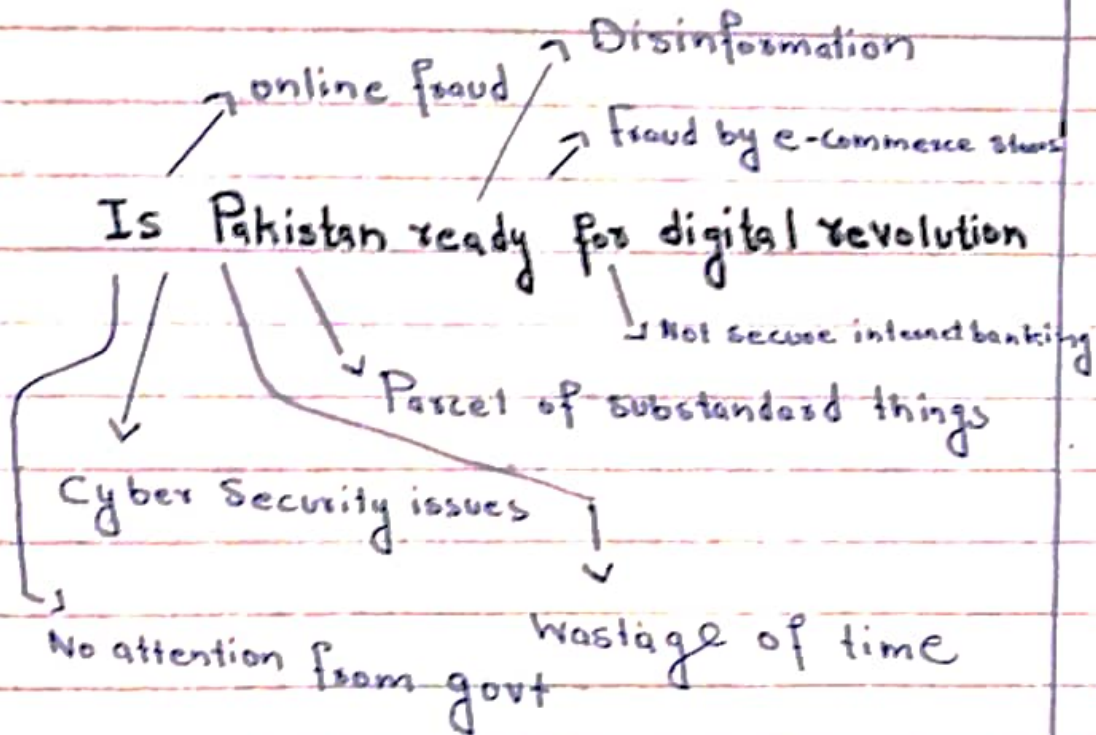 Disinformation
online fraud
Fraud by e-commerce stores
Is Pakistan ready for digital revolution
Not secure internet banking
Parcel of substandard things
Cyber Security issues
Wastage of time
No attention from govt